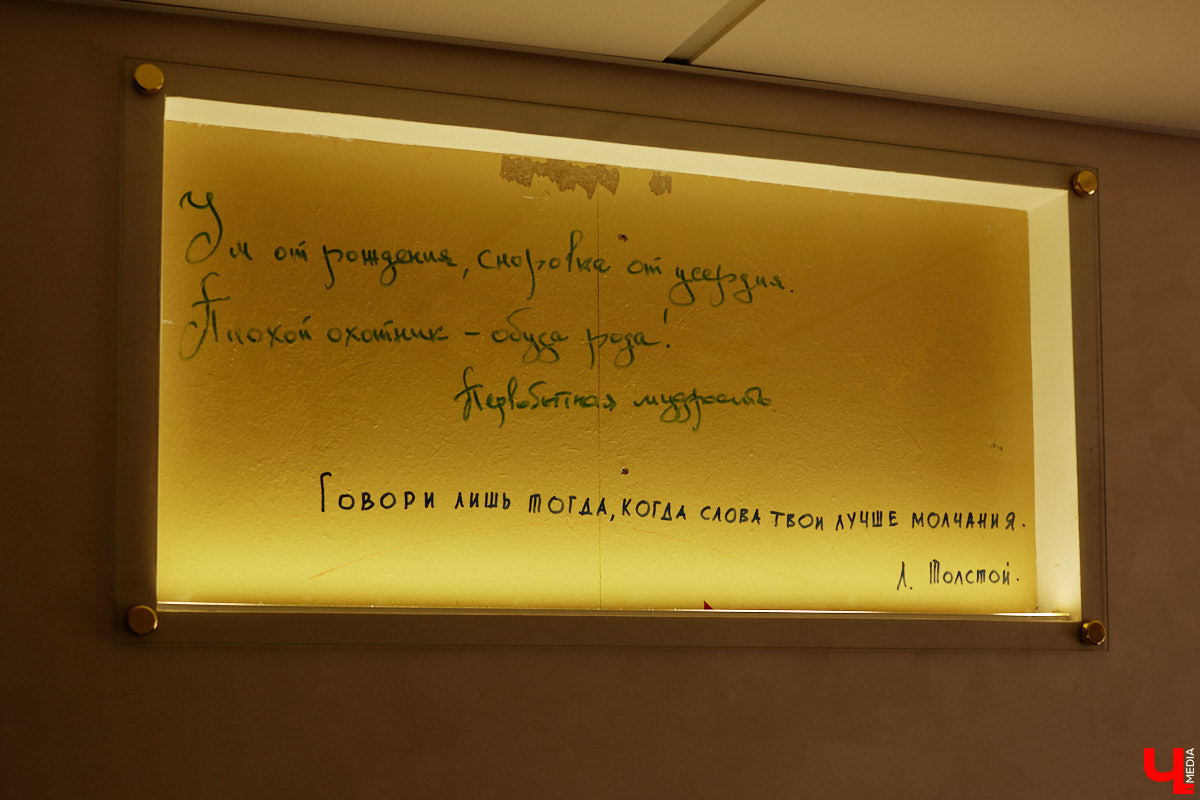 Ум от рождения, сноровка от усердия.
Плохой охотник – обуза рода!
Первобытная мудрость.
Говори лишь тогда, когда слова твои лучше молчания.
Л. Толстой.
Ч MEDIA